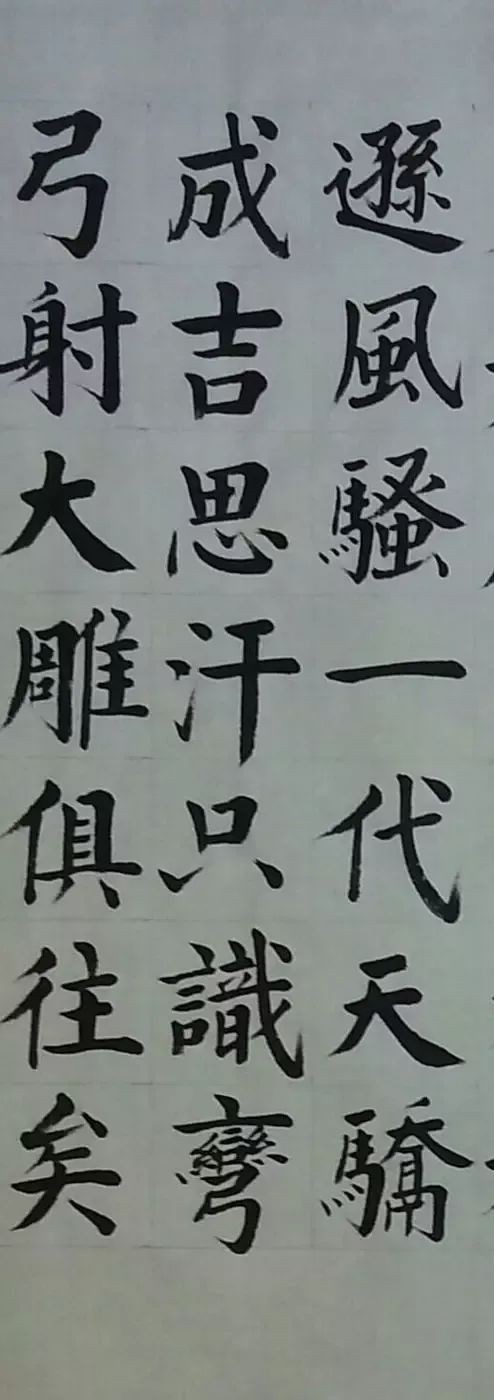 遜風騷一代天驕
成吉思汗只識彎
弓射大雕俱往矣